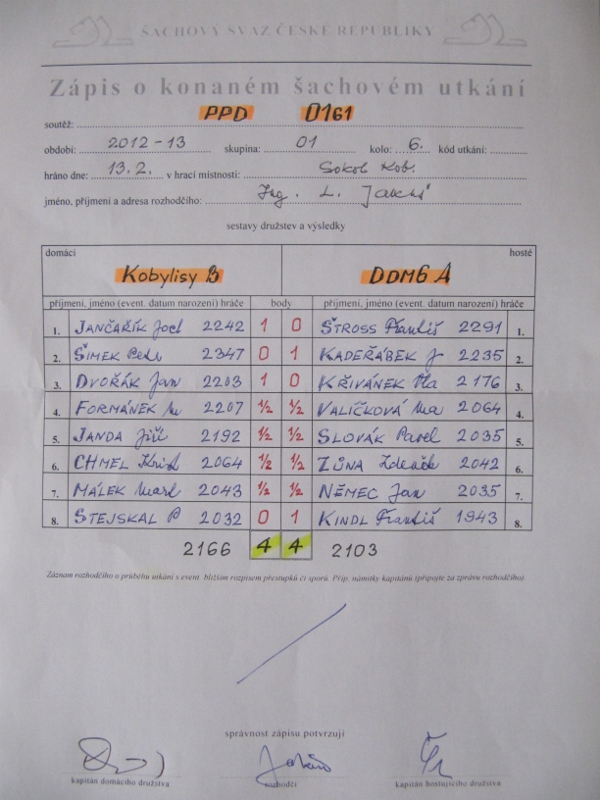 ŠACHOVÝ SVAZ ČESKÉ REPUBLIKY
Zápis o konaném šachovém utkání
soutěž: PPD 0161
období: 2012-13 skupina: 01 kolo: 6. kód utkání:
hráno dne: 13.2. v hrací místnosti: Sokol Kob.
jméno, příjmení a adresa rozhodčího: Ing. L.
sestavy družstev a výsledky
domácí hosté
Kobylisy B DDM6 A
příjmení, jméno (event. datum narození) hráče body příjmení, jméno (event. datum narození) hráče
1. JANČAŘÍK Joel 2242 1 0 ŠTROSS Františ 2291 1.
2. ŠIMEK Petr 2347 0 1 KADEŘÁBEK J 2235 2.
3. DVOŘÁK Jan 2203 1 0 KŘIVÁNEK Vla 2176 3.
4. FORMÁNEK 2207 ½ ½ VALÍČKOVÁ Ma 2064 4.
5. JANDA Jiří 2192 ½ ½ SLOVÁK Pavel 2035 5.
6. CHMEL Krist 2064 ½ ½ ZŮNA Zdeněk 2042 6.
7. MÁLEK 2043 ½ ½ NĚMEC Jan 2035 7.
8. STEJSKAL P 2032 0 1 KINDL Františ 1943 8.
2166 4 4 2103
Záznam rozhodčího o průběhu utkání s event. bližším rozpisem přestupků či sporů. Příp. námitky kapitánů (připojte za zprávu rozhodčího)
správnost zápisu potvrzují
kapitán domácího družstva rozhodčí kapitán hostujícího družstva